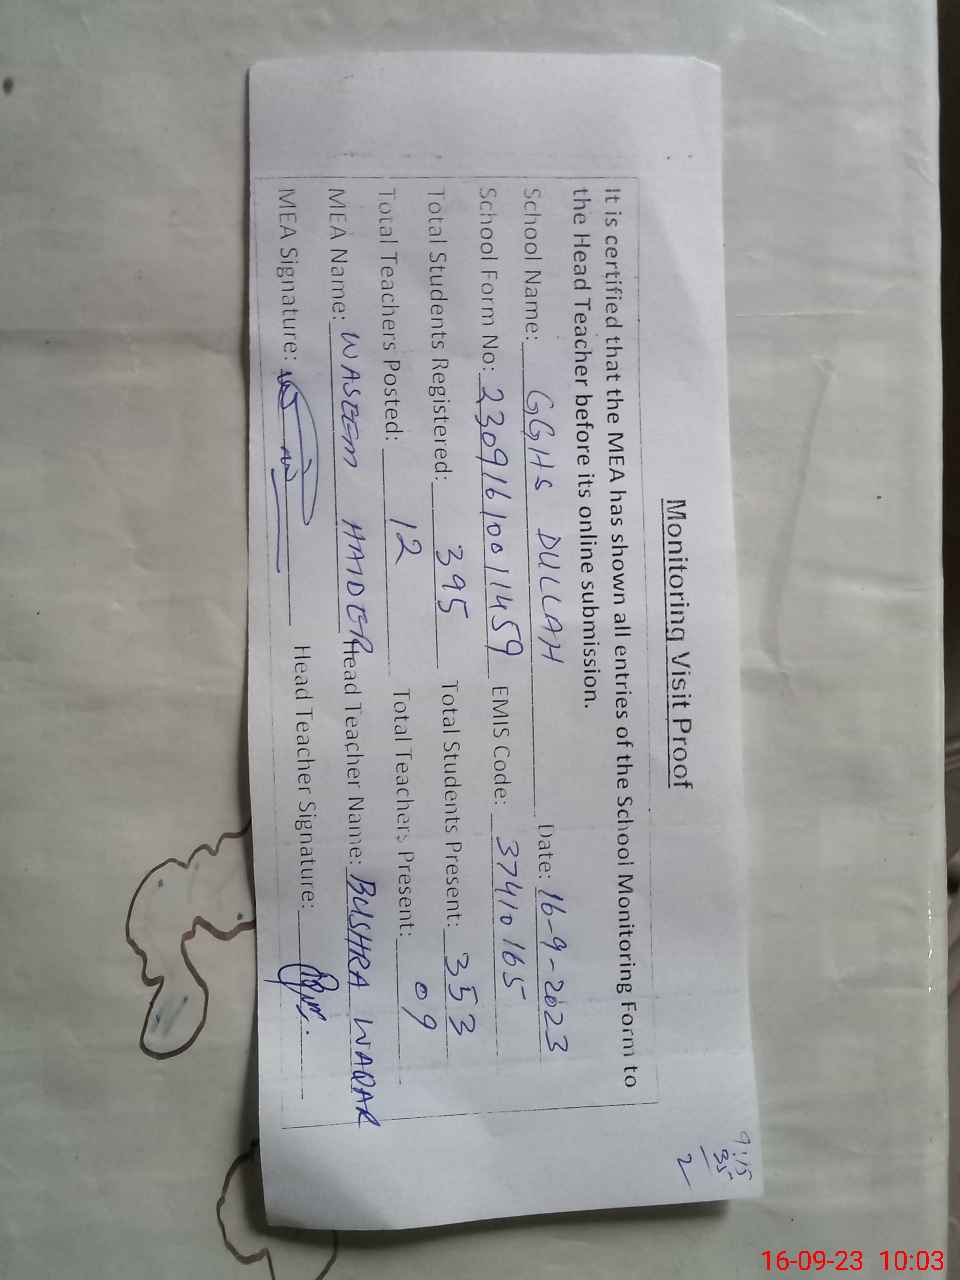 9:15
35
2
Monitoring Visit Proof
It is certified that the MEA has shown all entries of the School Monitoring Form to
the Head Teacher before its online submission.
School Name: GGHS DULLAH Date: 16-9-2023
School Form No: 23091610011459 EMIS Code: 37410165
Total Students Registered: 395 Total Students Present: 353
Total Teachers Posted: 12 Total Teachers Present: 09
MEA Name: WASEEM HAIDER Head Teacher Name: BUSHRA WAQAR
MEA Signature: Head Teacher Signature:
16-09-23 10:03